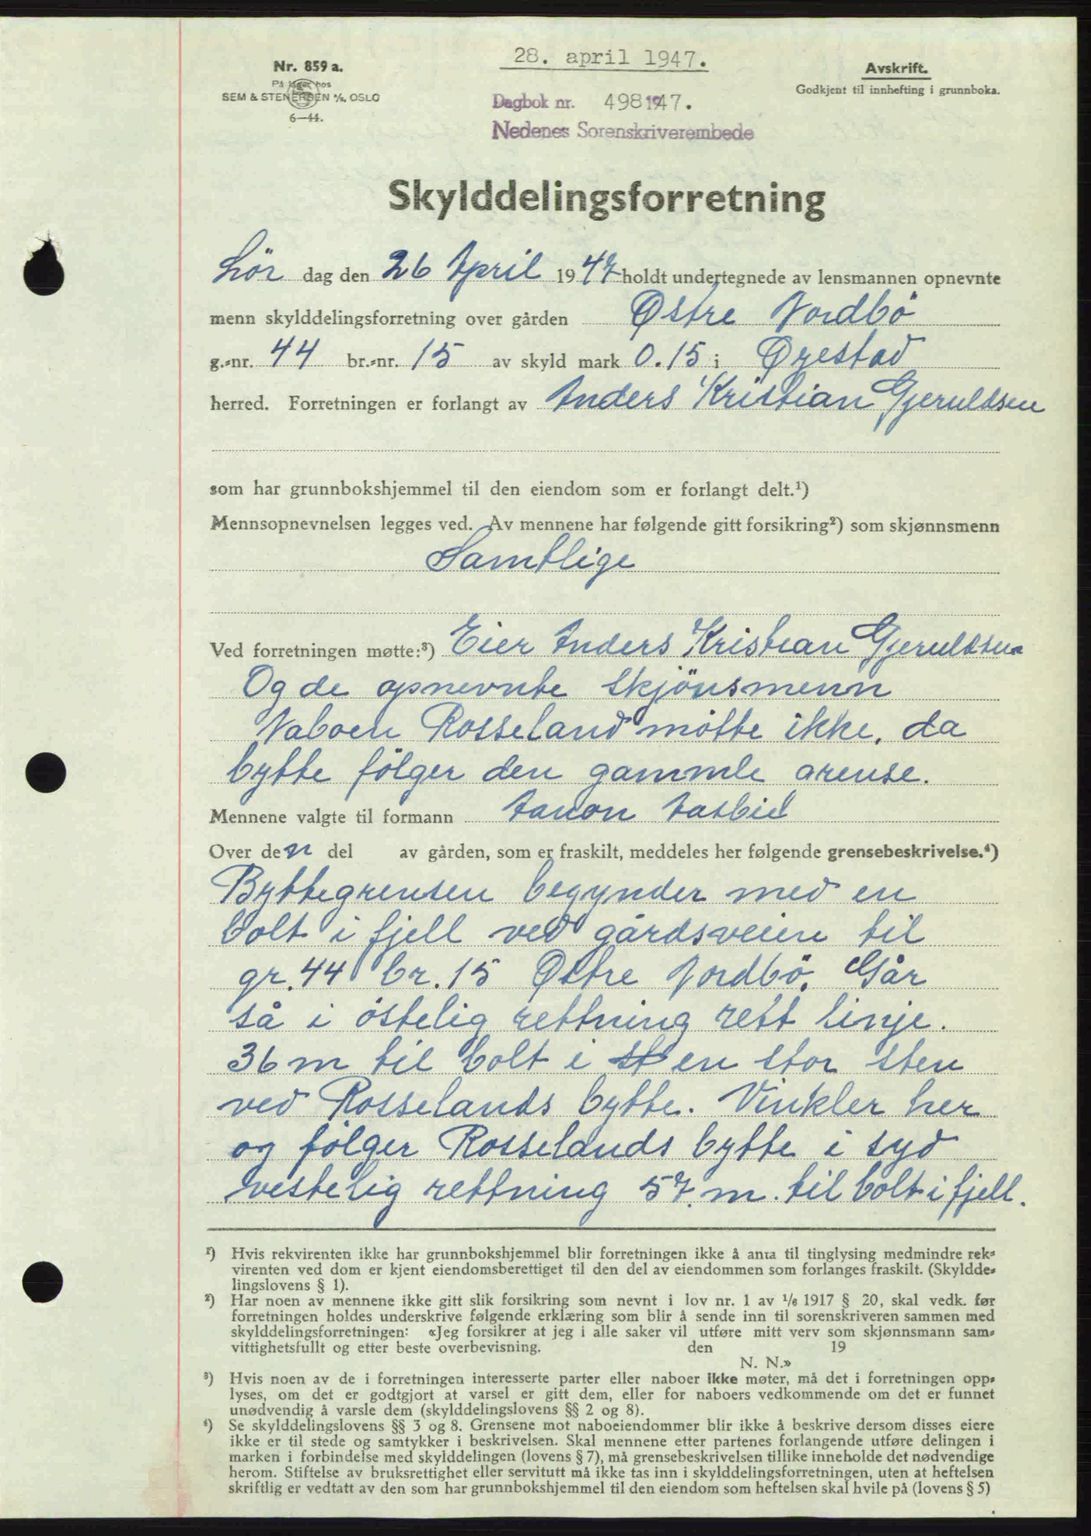 28. april 1947.
Nr. 859 a.
På lager hos
SEM & STENERSEN A/S, OSLO
6—44.
Dagbok nr. 498 1947.
Nedenes Sorenskriverembede
Avskrift.
Godkjent til innhefting i grunnboka.
Skylddelingsforretning
Lör dag den 26 April 1947 holdt undertegnede av lensmannen opnevnte
menn skylddelingsforretning over gården Østre Nordbö
g.-nr. 44 br.-nr. 15 av skyld mark 0.15 i Øyestad
herred. Forretningen er forlangt av Anders Kristian Gjeruldsen
som har grunnbokshjemmel til den eiendom som er forlangt delt.¹)
Mennsopnevnelsen legges ved. Av mennene har følgende gitt forsikring²) som skjønnsmenn
Samtlige
Ved forretningen møtte:³) Eier Anders Kristian Gjeruldsen
Og de opnevnte skjönsmenn
Naboen Rosseland møtte ikke, da
bytte fölger den gammle
Mennene valgte til formann
Over den del av gården, som er fraskilt, meddeles her følgende grensebeskrivelse.⁴)
Byttegrensen begynder med en
bolt i fjell ved gårdsveien til
gr. 44 br. 15 Østre Nordbö. Går
så i östelig rettning rett linje.
36 m til bolt i en stor sten
ved Rosselands bytte. Vinkler her
og fölger Rosselands bytte i syd
vestelig rettning 57 m. til bolt i fjell.
¹) Hvis rekvirenten ikke har grunnbokshjemmel blir forretningen ikke å anta til tinglysing medmindre rek-
virenten ved dom er kjent eiendomsberettiget til den del av eiendommen som forlanges fraskilt. (Skyldde-
lingslovens § 1).
²) Har noen av mennene ikke gitt slik forsikring som nevnt i lov nr. 1 av 1/6 1917 § 20, skal vedk. før
forretningen holdes underskrive følgende erklæring som blir å sende inn til sorenskriveren sammen med
skylddelingsforretningen: «Jeg forsikrer at jeg i alle saker vil utføre mitt verv som skjønnsmann sam-
vittighetsfullt og etter beste overbevisning. den 19
N. N.»
³) Hvis noen av de i forretningen interesserte parter eller naboer ikke møter, må det i forretningen opp-
lyses, om det er godtgjort at varsel er gitt dem, eller for naboers vedkommende om det er funnet
unødvendig å varsle dem (skylddelingslovens §§ 2 og 8).
⁴) Se skylddelingslovens §§ 3 og 8. Grensene mot naboeiendommer blir ikke å beskrive dersom disses eiere
ikke er til stede og samtykker i beskrivelsen. Skal mennene etter partenes forlangende utføre delingen i
marken i forbindelse med skylddelingen (lovens § 7), må grensebeskrivelsen tillike inneholde det nødvendige
herom. Stiftelse av bruksrettighet eller servitutt må ikke tas inn i skylddelingsforretningen, uten at heftelsen
skriftlig er vedtatt av den som har grunnbokshjemmel til den eiendom som heftelsen skal hvile på (lovens § 5)